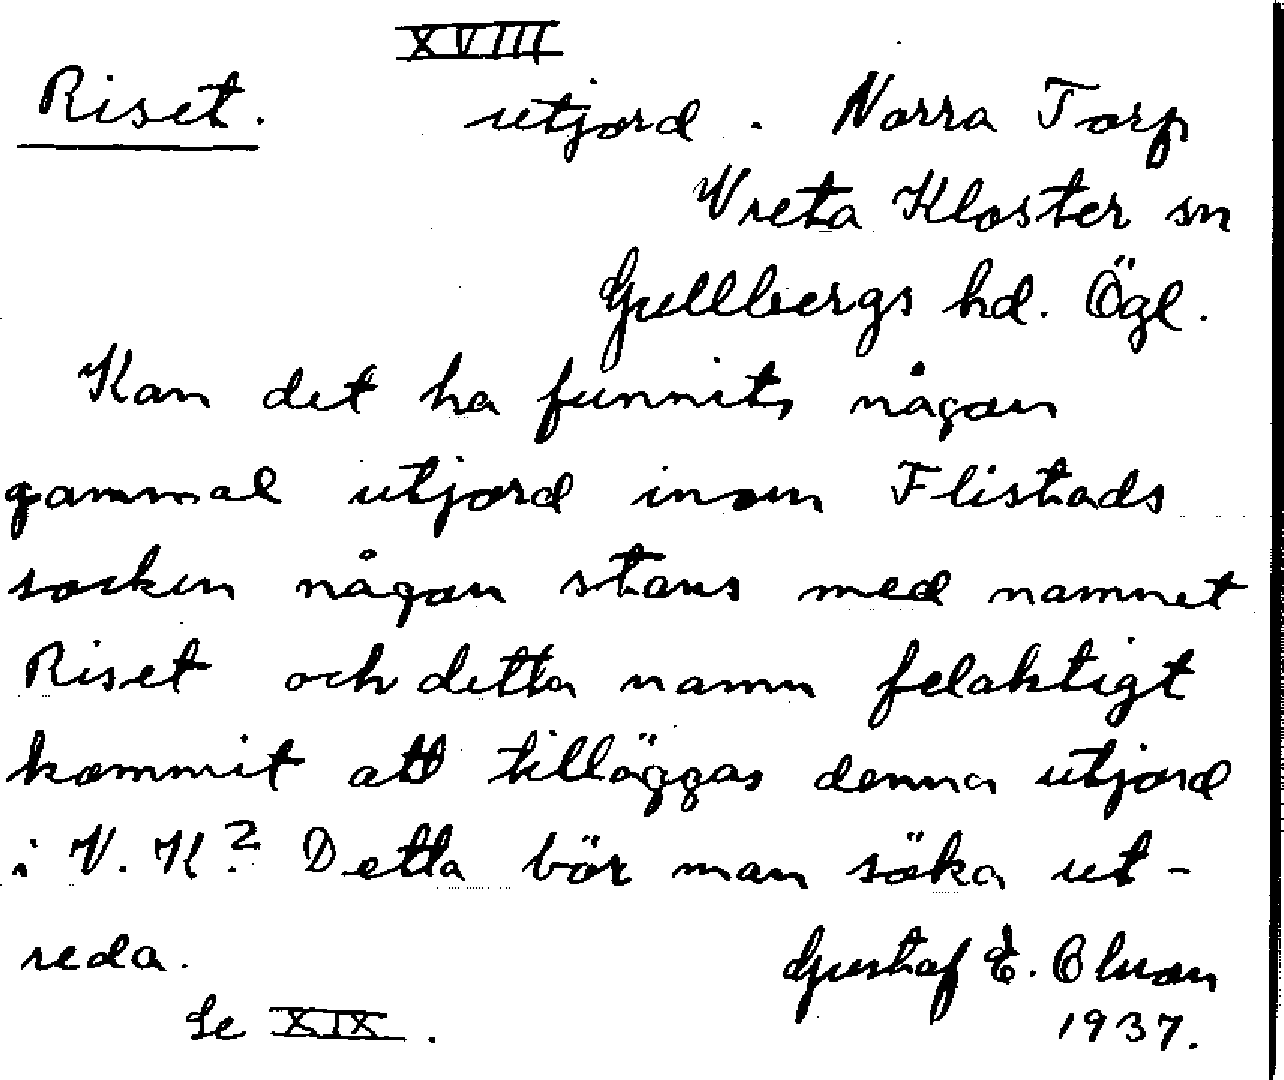 XVIII
Riset. utjord. Norra Torp
Vreta Kloster sn
Gullbergs hd. Ögl.
Kan det ha funnits någon
gammal utjord inom Flistads
socken någon stans med namnet
Riset och detta namn felaktigt
kommit att tilläggas denna utjord
i V. K? Detta bör man söka ut-
reda.
Gustaf E. Olsson
Se XIX. 1937.